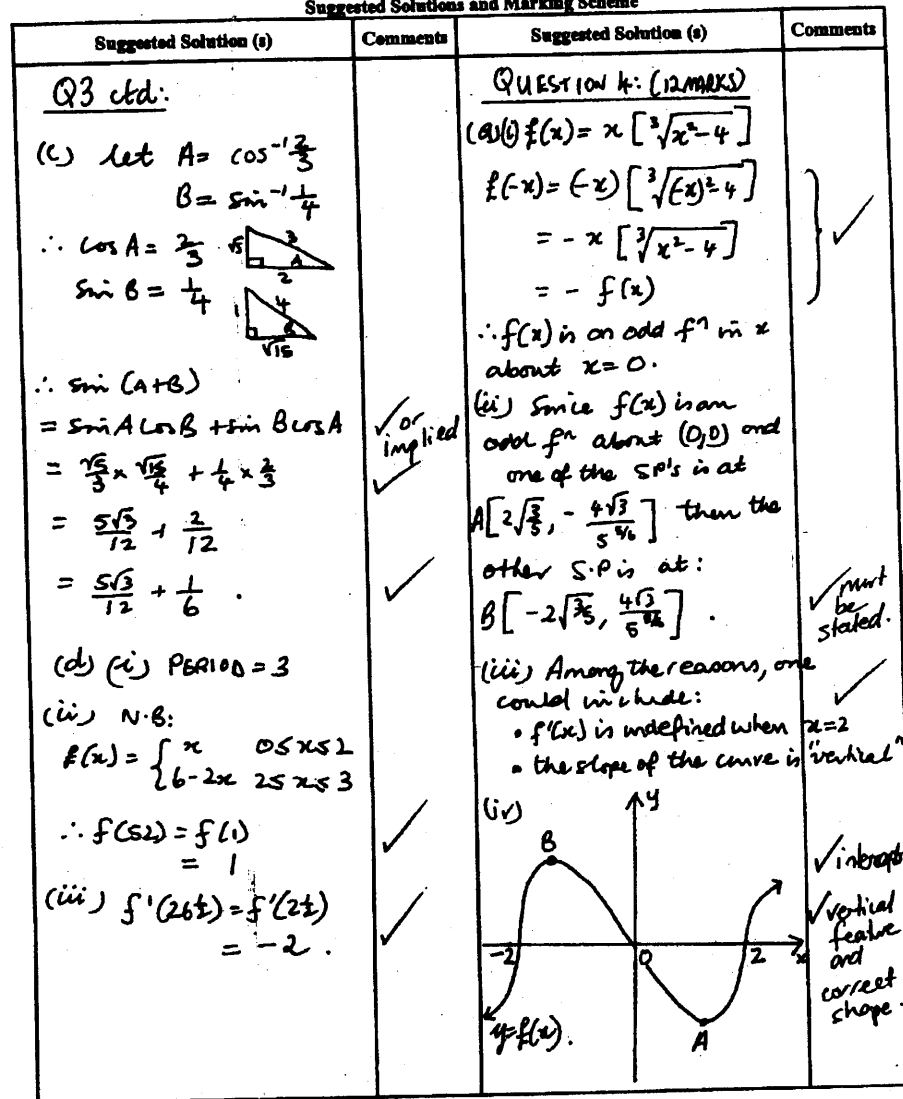 Suggested Solutions and Marking Scheme
Suggested Solution (s)
Comments
Q3 ctd:
(c) let A= cos⁻¹ 2/3
B= sin⁻¹ 1/4
∴ cos A = 2/3
√5 3 A 2
sin B = 1/4
1 4 B √15
∴ sin (A+B)
= sin A cos B + sin B cos A
✓ or implied
= √5/3 × √15/4 + 1/4 × 2/3
✓
= 5√3/12 + 2/12
= 5√3/12 + 1/6 .
✓
(d) (i) PERIOD = 3
(ii) N.B:
f(x) = { x 0≤x≤2
6-2x 2≤x≤3
∴ f(52) = f(1)
✓
= 1
(iii) f'(26½) = f'(2½)
✓
= -2 .
Suggested Solution (s)
Comments
QUESTION 4: (12 MARKS)
(a)(i) f(x) = x [∛(x²-4)]
f(-x) = (-x) [∛((-x)²-4)]
= -x [∛(x²-4)]
✓
= - f(x)
∴ f(x) is an odd fⁿ in x
about x=0.
(ii) Since f(x) is an
odd fⁿ about (0,0) and
one of the SP's is at
A[2√(3/5), -4√3/5^(5/6)] then the
other S.P is at:
B[-2√(3/5), 4√3/5^(5/6)] .
✓ must
be
stated.
(iii) Among the reasons, one
could include:
✓
• f'(x) is undefined when x=2
• the slope of the curve is "vertical"
(iv)
y
B
-2 O 2 x
A
y=f(x).
✓ intercepts
✓ vertical
feature
and
correct
shape.